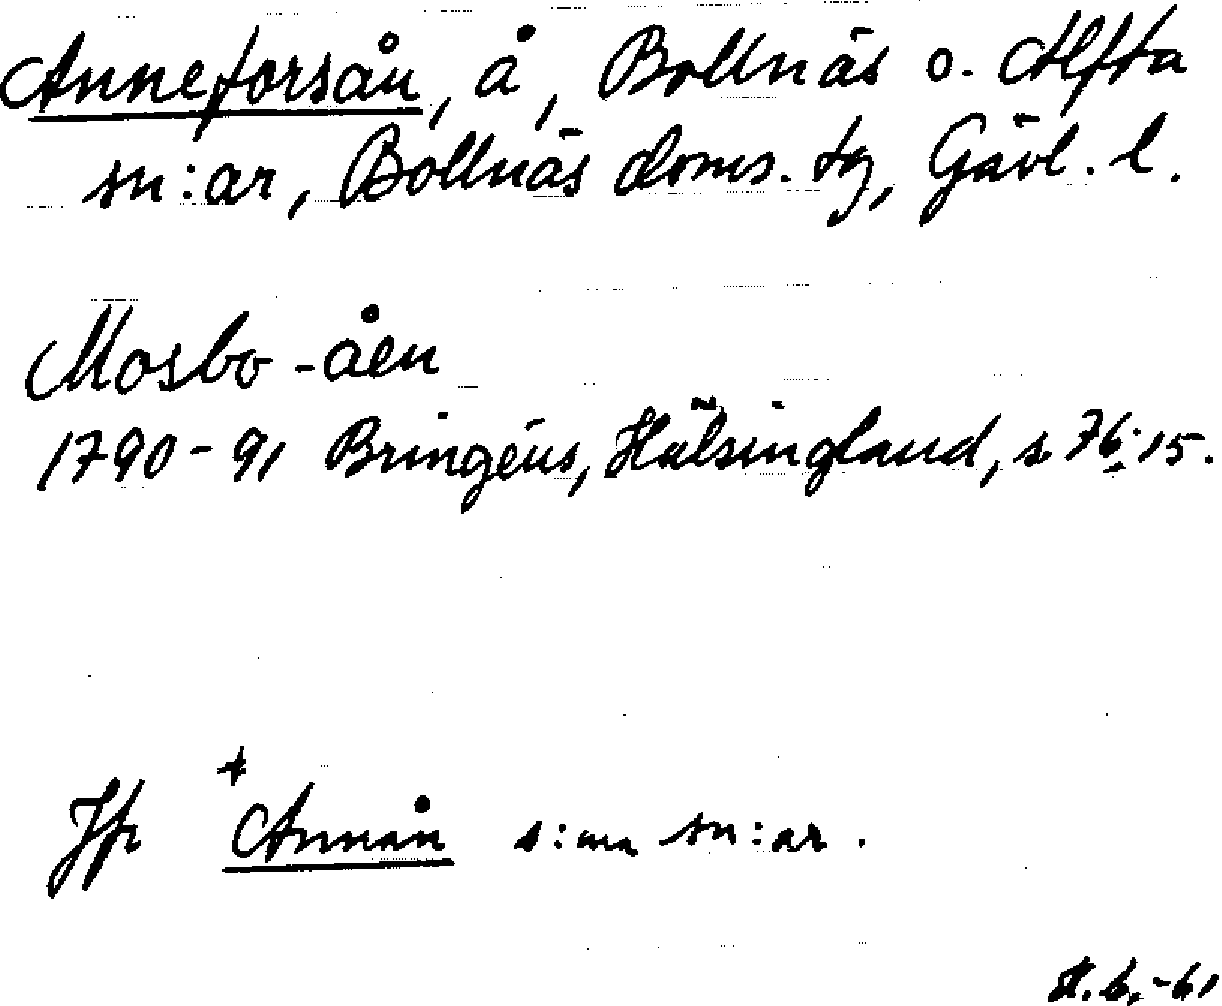 Anneforsån, å, Bollnäs o. Alfta
sn:ar, Bollnäs doms. tg, Gävl. l.
Mosbo-åen
1790-91 Bringéus, Hälsingland, s. 76:15.
Jfr +Annån s:ma sn:ar.
-61